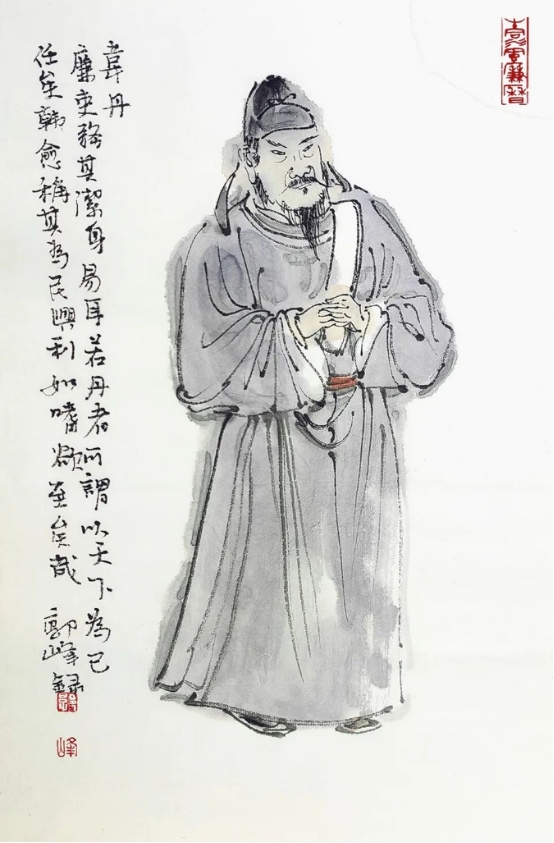 韋丹
廉吏務其潔身易耳若丹者所謂以天下為己
任矣韓愈稱其為民興利如嗜欲至矣哉 郭峰録
峰